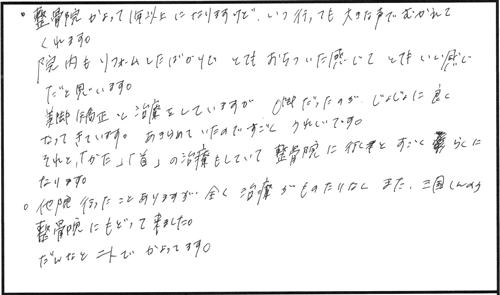 ○ 整骨院かよって1年以上になりますけど、いつ行っても大きな声でむかえて
くれます。
院内もリフォームしたばかりで とてもおちついた感じで とてもいい感じ
だと思います。
美脚矯正と治療をしていますが O脚だったのが じょじょに良く
なってきています。 あきらめていたのですごく うれしいです。
それと、「かた」「首」の治療もしていて 整骨院に行くと すごく らくに
なります。
○ 他院 行ったことありますが 全く 治療がものたりなく また、三国しんみち
整骨院にもどって来ました。
だんなと 二人で かよってます。